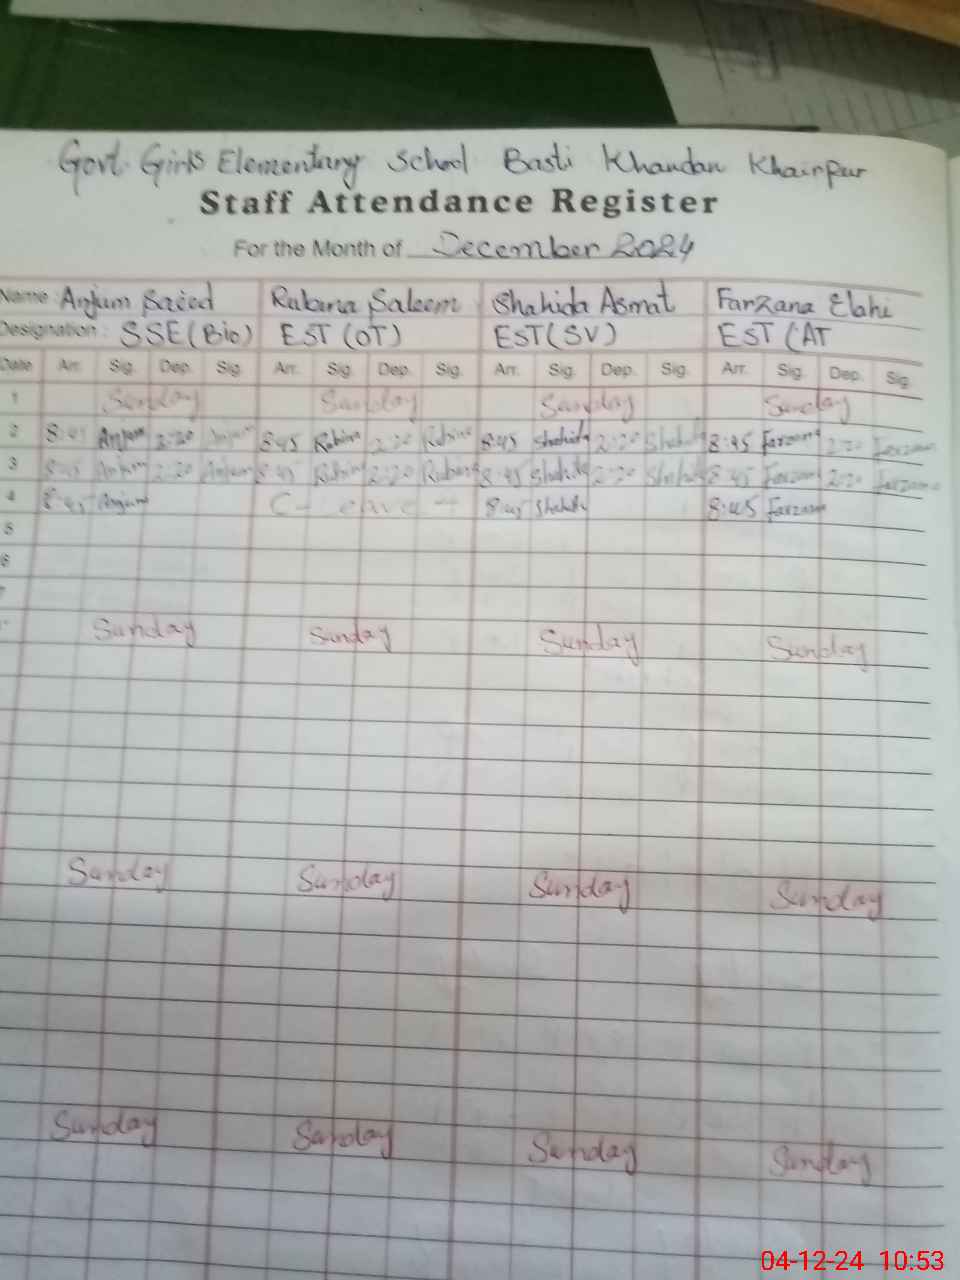 Govt. Girls Elementary School Basti Khandan Khairpur
Staff Attendance Register
For the Month of December 2024
Name Anjum Saied Rubina Saleem Shahida Asmat Farzana Elahi
Designation: SSE(Bio) EST (OT) EST(SV) EST (AT
Date Arr. Sig. Dep. Sig. Arr. Sig. Dep. Sig. Arr. Sig. Dep. Sig. Arr. Sig. Dep. Sig.
1 Sunday Sunday Sunday Sunday
2 8:45 Anjum 2:20 Anjum 8:45 Rubina 2:20 Rubina 8:45 Shahida 2:20 Shahida 8:45 Farzana 2:20 Farzana
3 8:45 Anjum 2:20 Anjum 8:45 Rubina 2:20 Rubina 8:45 Shahida 2:20 Shahida 8:45 Farzana 2:20 Farzana
4 8:45 Anjum C - leave - 8:45 Shahida 8:45 Farzana
5
6
7
Sunday Sunday Sunday Sunday
Sunday Sunday Sunday Sunday
Sunday Sunday Sunday Sunday
04-12-24 10:53